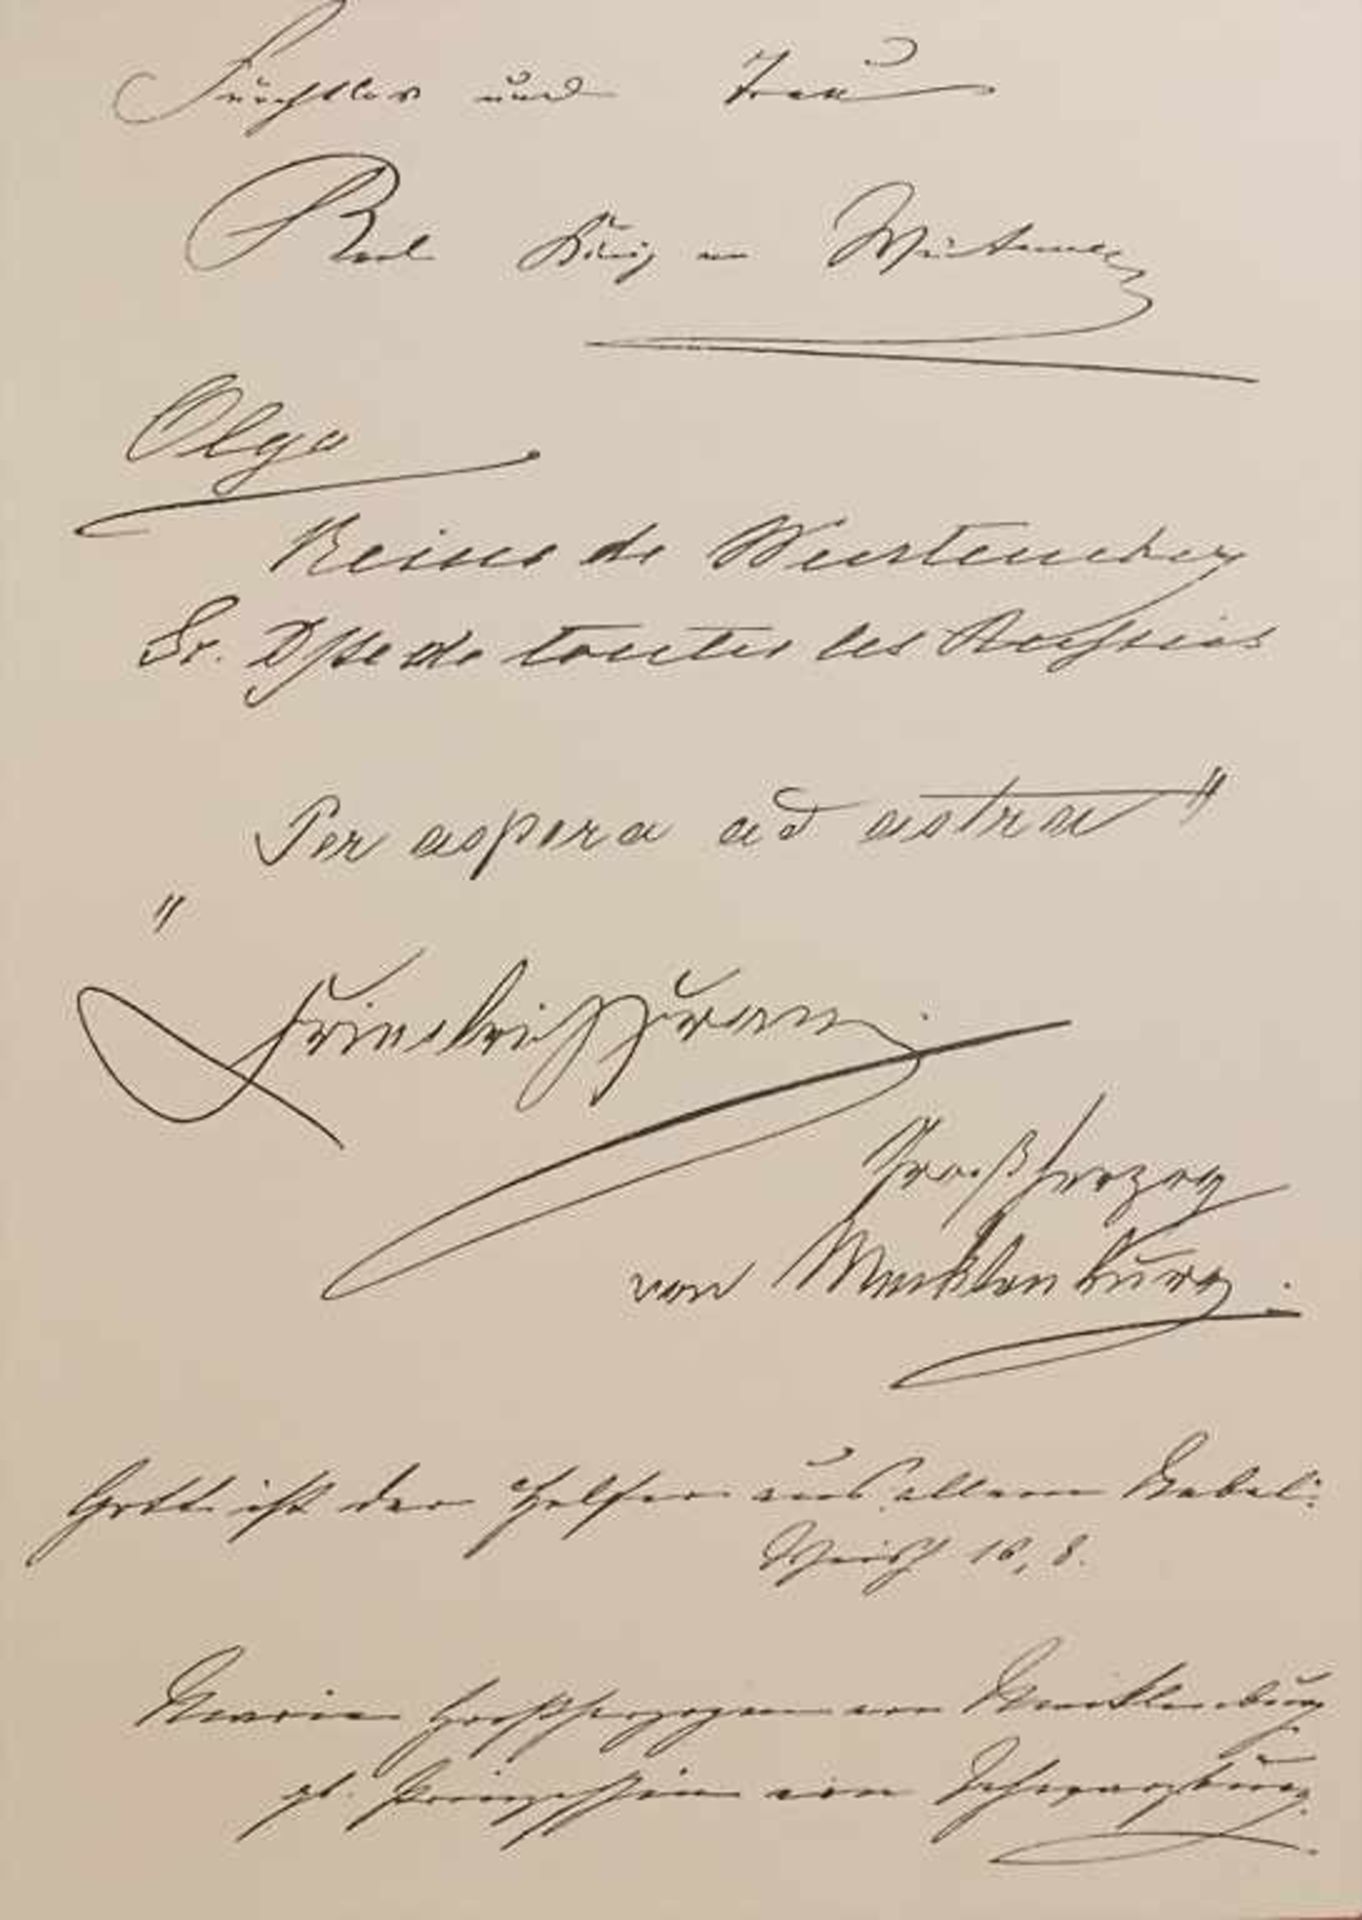 Furchtlos und Treu
Karl König von Württemberg
Olga
Reine de Wurtemberg
Gr. Dsse de toutes les Russies
Per aspera ad astra"
"
Friedrich Franz.
Großherzog
von Mecklenburg.
Gott ist der Helfer aus allem Uebel:
Weish 16, 8.
Marie Großherzogin von Mecklenburg
gb. Prinzessin von Schwarzburg.